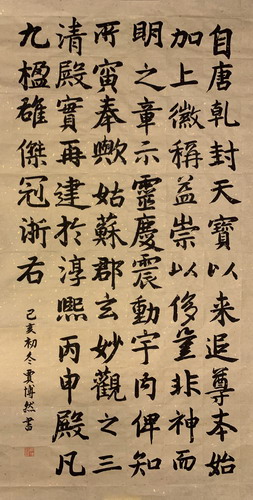 自唐乹封天寶以来追尊本始
加上徽稱益崇以侈豈非神而
明之章示靈慶震動宇内俾知
所寅奉歟姑蘇郡玄妙觀之三
清殿實再建於淳熙丙申殿凡
九楹䧺傑冠浙右
己亥初冬賈博然書